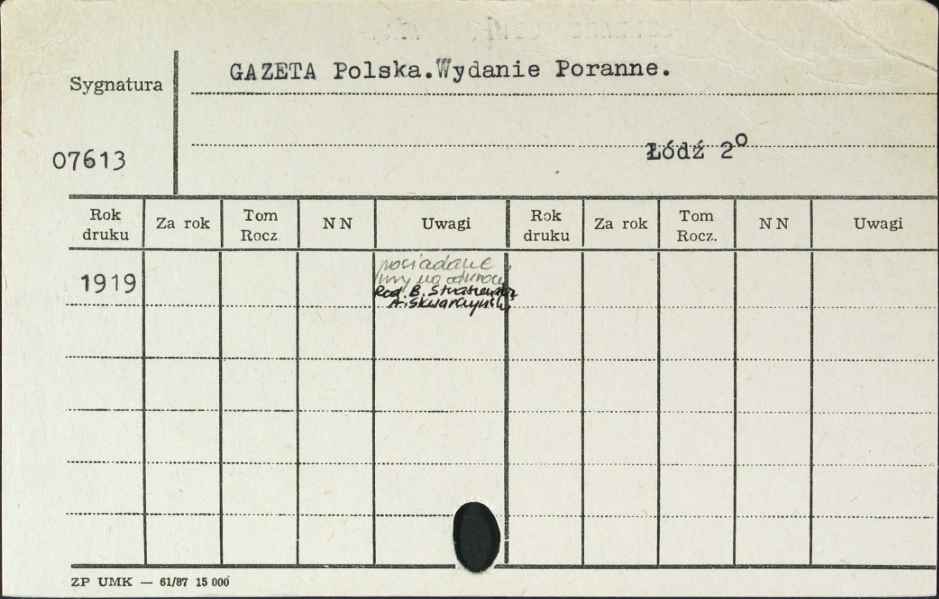 GAZETA Polska.Wydanie Poranne.
Sygnatura
07613
Łódź 2°
Rok druku Za rok Tom Rocz NN Uwagi Rok druku Za rok Tom Rocz. NN Uwagi
1919
posiadane
nry na odwrocie
Red. B.
A. Skwarczyński
ZP UMK — 61/87 15 000